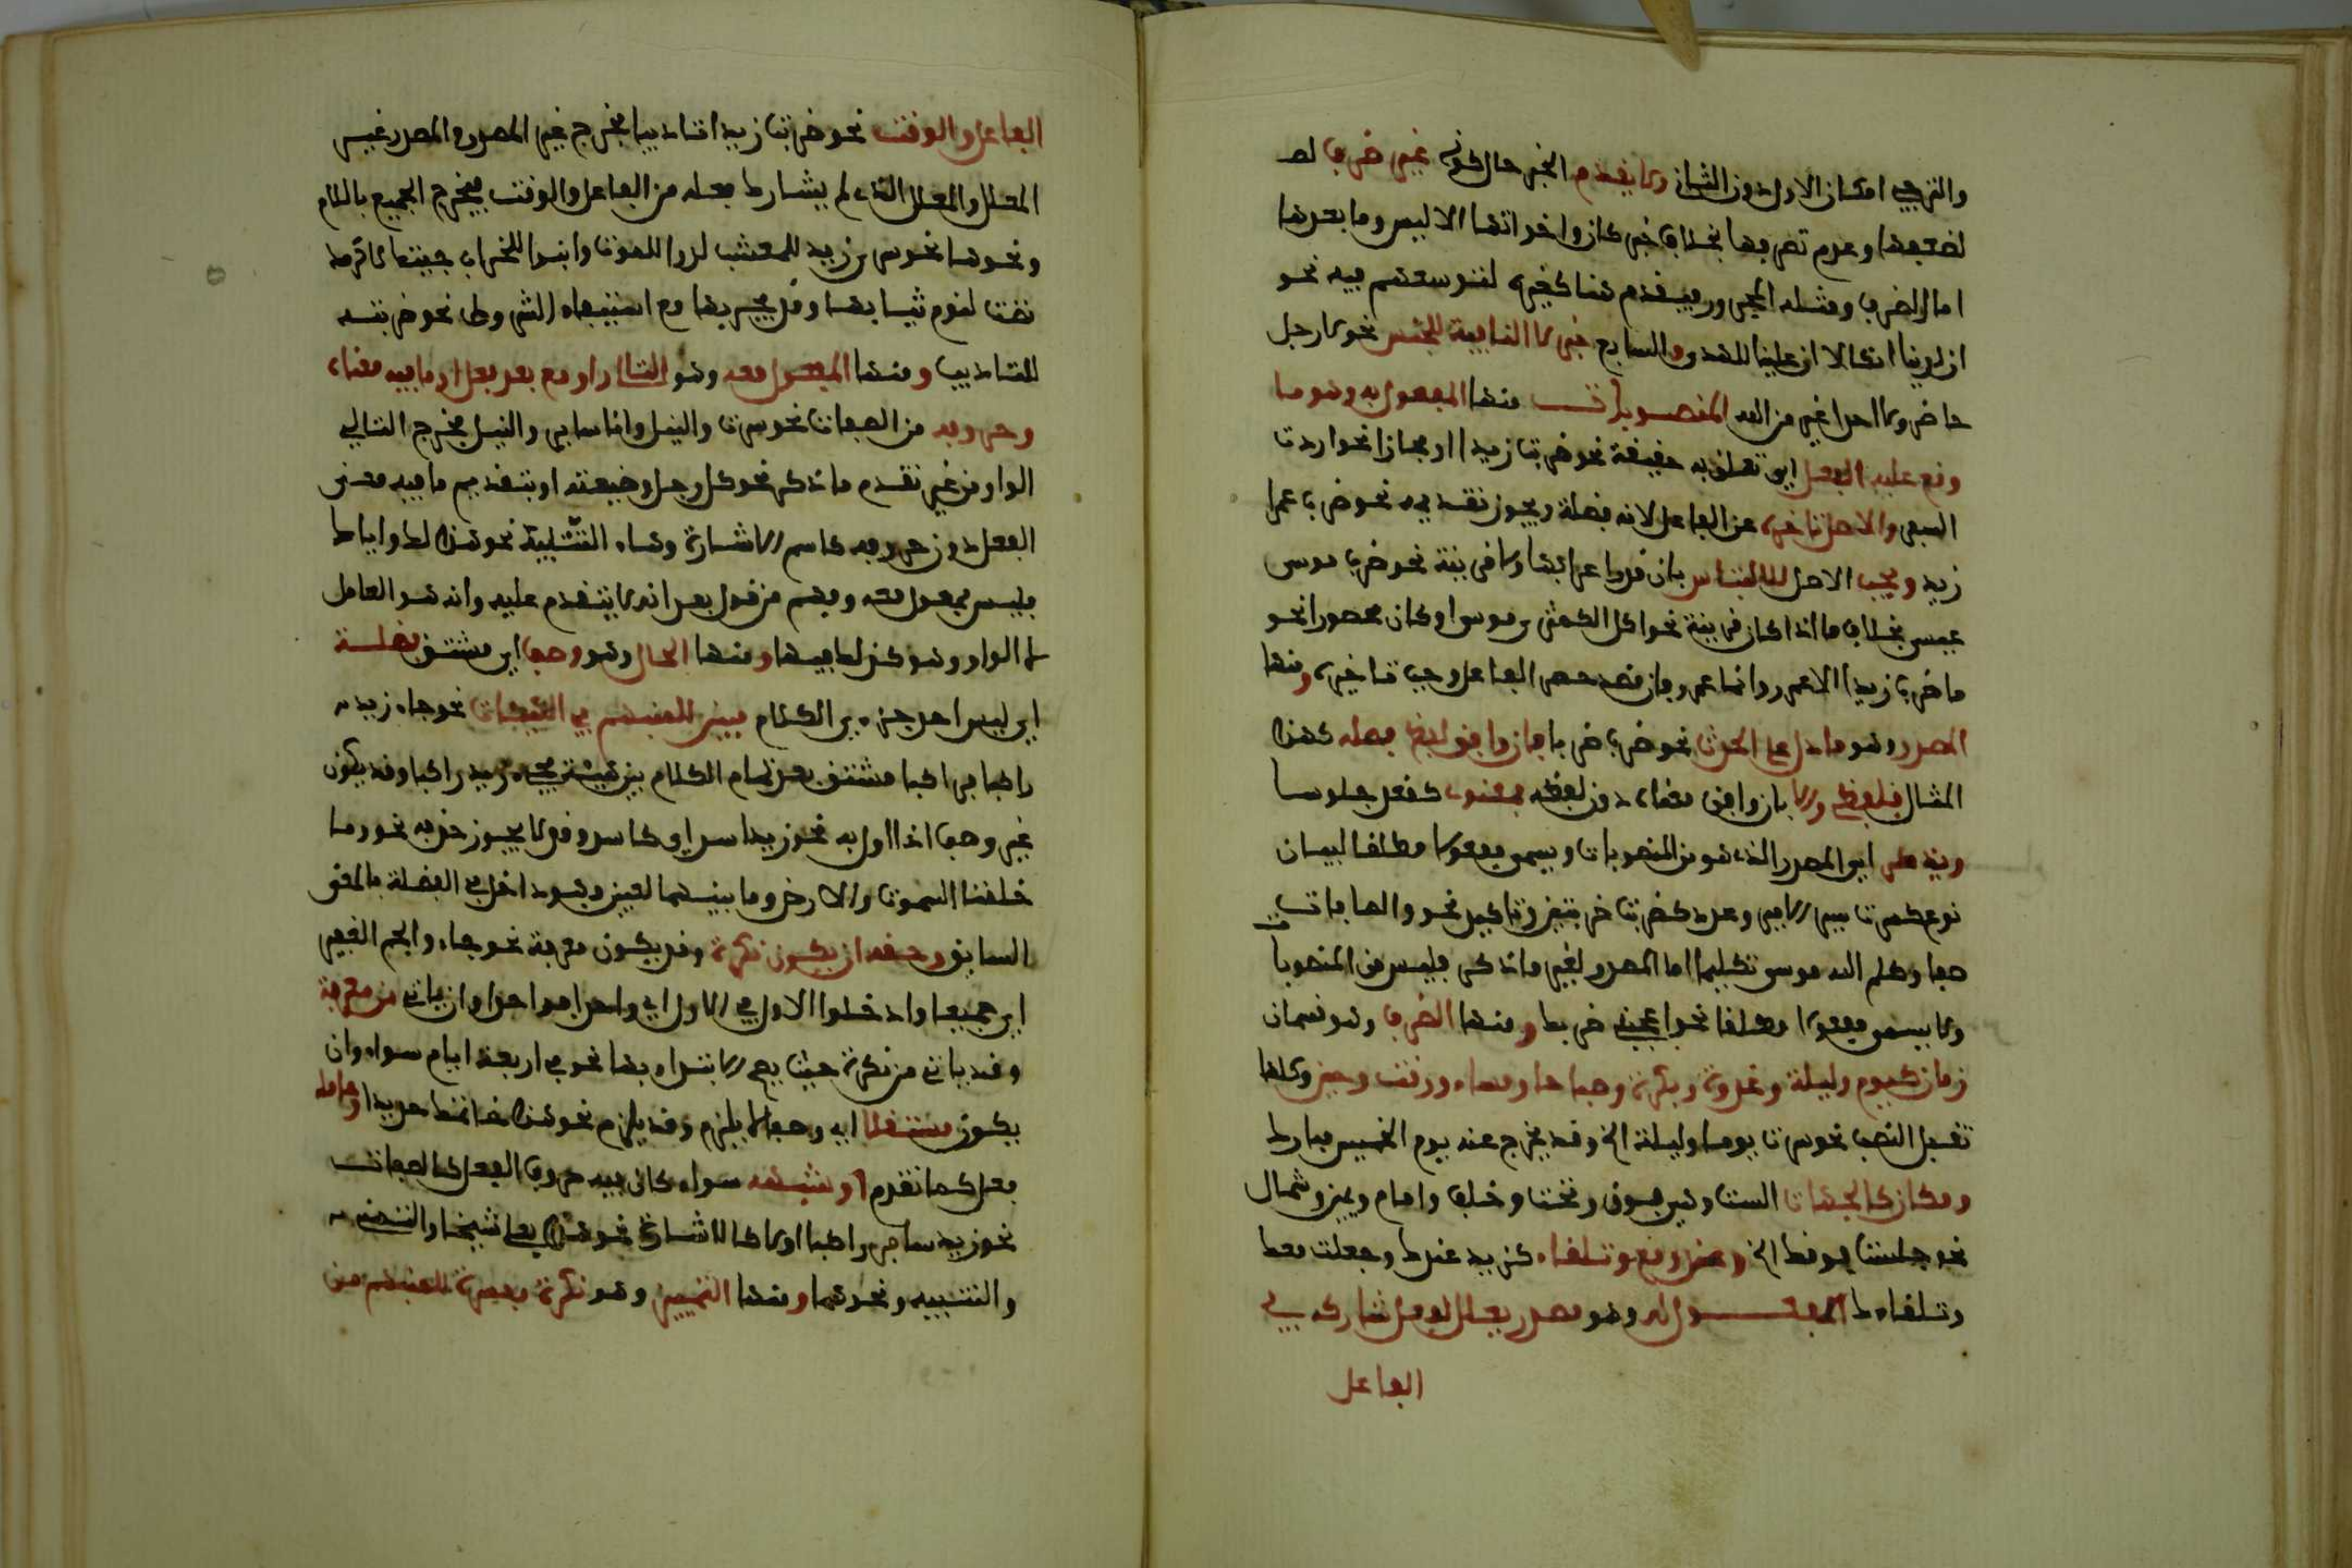 والترجي امكان الاول دون الثاني ولا يقدم الخبر حال كونه غير ظرف لها
لضعفها وعدم تصرفها بخلاف خبر كان واخواتها الا ليس وما بعدها
اما الظرف ومثله المجرور فيقدم هنا كغيره لتوسعهم فيه نحو
ان لدينا انكالا ان علينا للهدى والسابع خبر لا النافية للجنس نحو لا رجل
حاضر ولا احد اغير من الله المنصوبات منها المفعول به وهو ما
وقع عليه الفعل اي تعلق به حقيقة نحو ضربت زيدا او مجازا نحو اردت
السفر والاصل تاخيره عن الفاعل لانه فضلة ويجوز تقديمه نحو ضرب عمرا
زيد ويجب الاصل للالتباس بان قدر اعرابهما ولا قرينة نحو ضرب موسى
عيسى بخلاف ما اذا كان قرينة نحو اكل الكمثرى موسى او كان محصورا نحو
ما ضرب زيدا الا عمرو وانما عمرو فان قصد حصر الفاعل وجب تاخيره ومنها
المصدر وهو ما دل على الحدث نحو ضرب ضربا فان وافق لفظه فعله كهذا
المثال فلفظي والا بان وافق معناه دون لفظه فمعنوي كقعد جلوسا
وينصب اي المصدر الذي هو من المنصوبات ويسمى مفعولا مطلقا لبيان
نوع كسرت سير الامير وعدد كضربت ضربتين وتاكيد نحو والصافات
صفا وكلم الله موسى تكليما اما المصدر لغير ما ذكر فليس من المنصوبات
ولا يسمى مفعولا مطلقا نحو اعجبني ضربك ومنها الظرف وهو قسمان
زمان كيوم وليلة وغدوة وبكرة وصباحا ومساء ووقت وحين وكلها
تقبل النصب نحو سرت يوما وليلة الخ وقد يخرج عنه يوم الخميس مبارك
ومكان كالجهات الست وهي فوق وتحت وخلف وامام ويمين وشمال
نحو جلست فوقك الخ وعند ومع وتلقاء كزيد عندك وجعلت معك
وتلقاءك المفعول له وهو مصدر يعلل لفعل شاركه في
الفاعل
الفاعل والوقت نحو ضربت زيدا تاديبا فخرج غير المصدر والمصدر غير
المعلل والمعلل الذي لم يشارك فعله من الفاعل والوقت فيخرج الجميع باللام
ونحوها نحو سرى زيد للعشب لدوا للموت وابنوا للخراب جئتك
نضت لنوم ثيابها وقد يجر بها مع استيفاء الشروط نحو ضربته
للتاديب ومنها المفعول معه وهو التالي واو مع بعد فعل او ما فيه معناه
وحروفه من الصفات نحو سرت والنيل وانا ساير والنيل فخرج التالي
الواو من غير تقدم ما ذكر نحو كل رجل وضيعته او بتقديم ما فيه معنى
الفعل دون حروفه كاسم الاشارة وهاء التنبيه نحو هذا لك واياك
فليس مفعول معه وفهم من قوله بعد انه لا يتقدم عليه وانه هو العامل
لا الواو وهو كذلك فيهما ومنها الحال وهو وصف اي مشتق فضلة
اي ليس احد جزءي الكلام مبين للمنبهم من الهيئات نحو جاء زيد
راكبا فراكبا مشتق بعد تمام الكلام بين هيئة مجيء زيد راكبا وقد يكون
غير وصف اذا اول به نحو زيد اسدا اي كاسد وقد لا يجوز حذفه نحو وما
خلقنا السموت والارض وما بينهما لعبين وهو داخل في الفضلة بالمعنى
السابق وحقه ان يكون نكرة وقد يكون معرفة نحو جاءوا الجم الغفير
اي جميعا وادخلوا الاول فالاول اي واحدا فواحدا وان ياتي من معرفة
وقد ياتي من نكرة حيث يصح الابتداء بها نحو في اربعة ايام سواء وان
يكون منتقلا اي وصفا لا يلزم وقد يلزم نحو هذا خاتمك حديدا وعامله
فعل كما تقدم او شبهه سواء كان فيه حروف الفعل كالصفات
نحو زيد سافر راكبا اولا كالاشارة نحو هذا بعلي شيخا والتمني
والتشبيه ونحوهما ومنها التمييز وهو نكرة مفسرة للمنبهم من